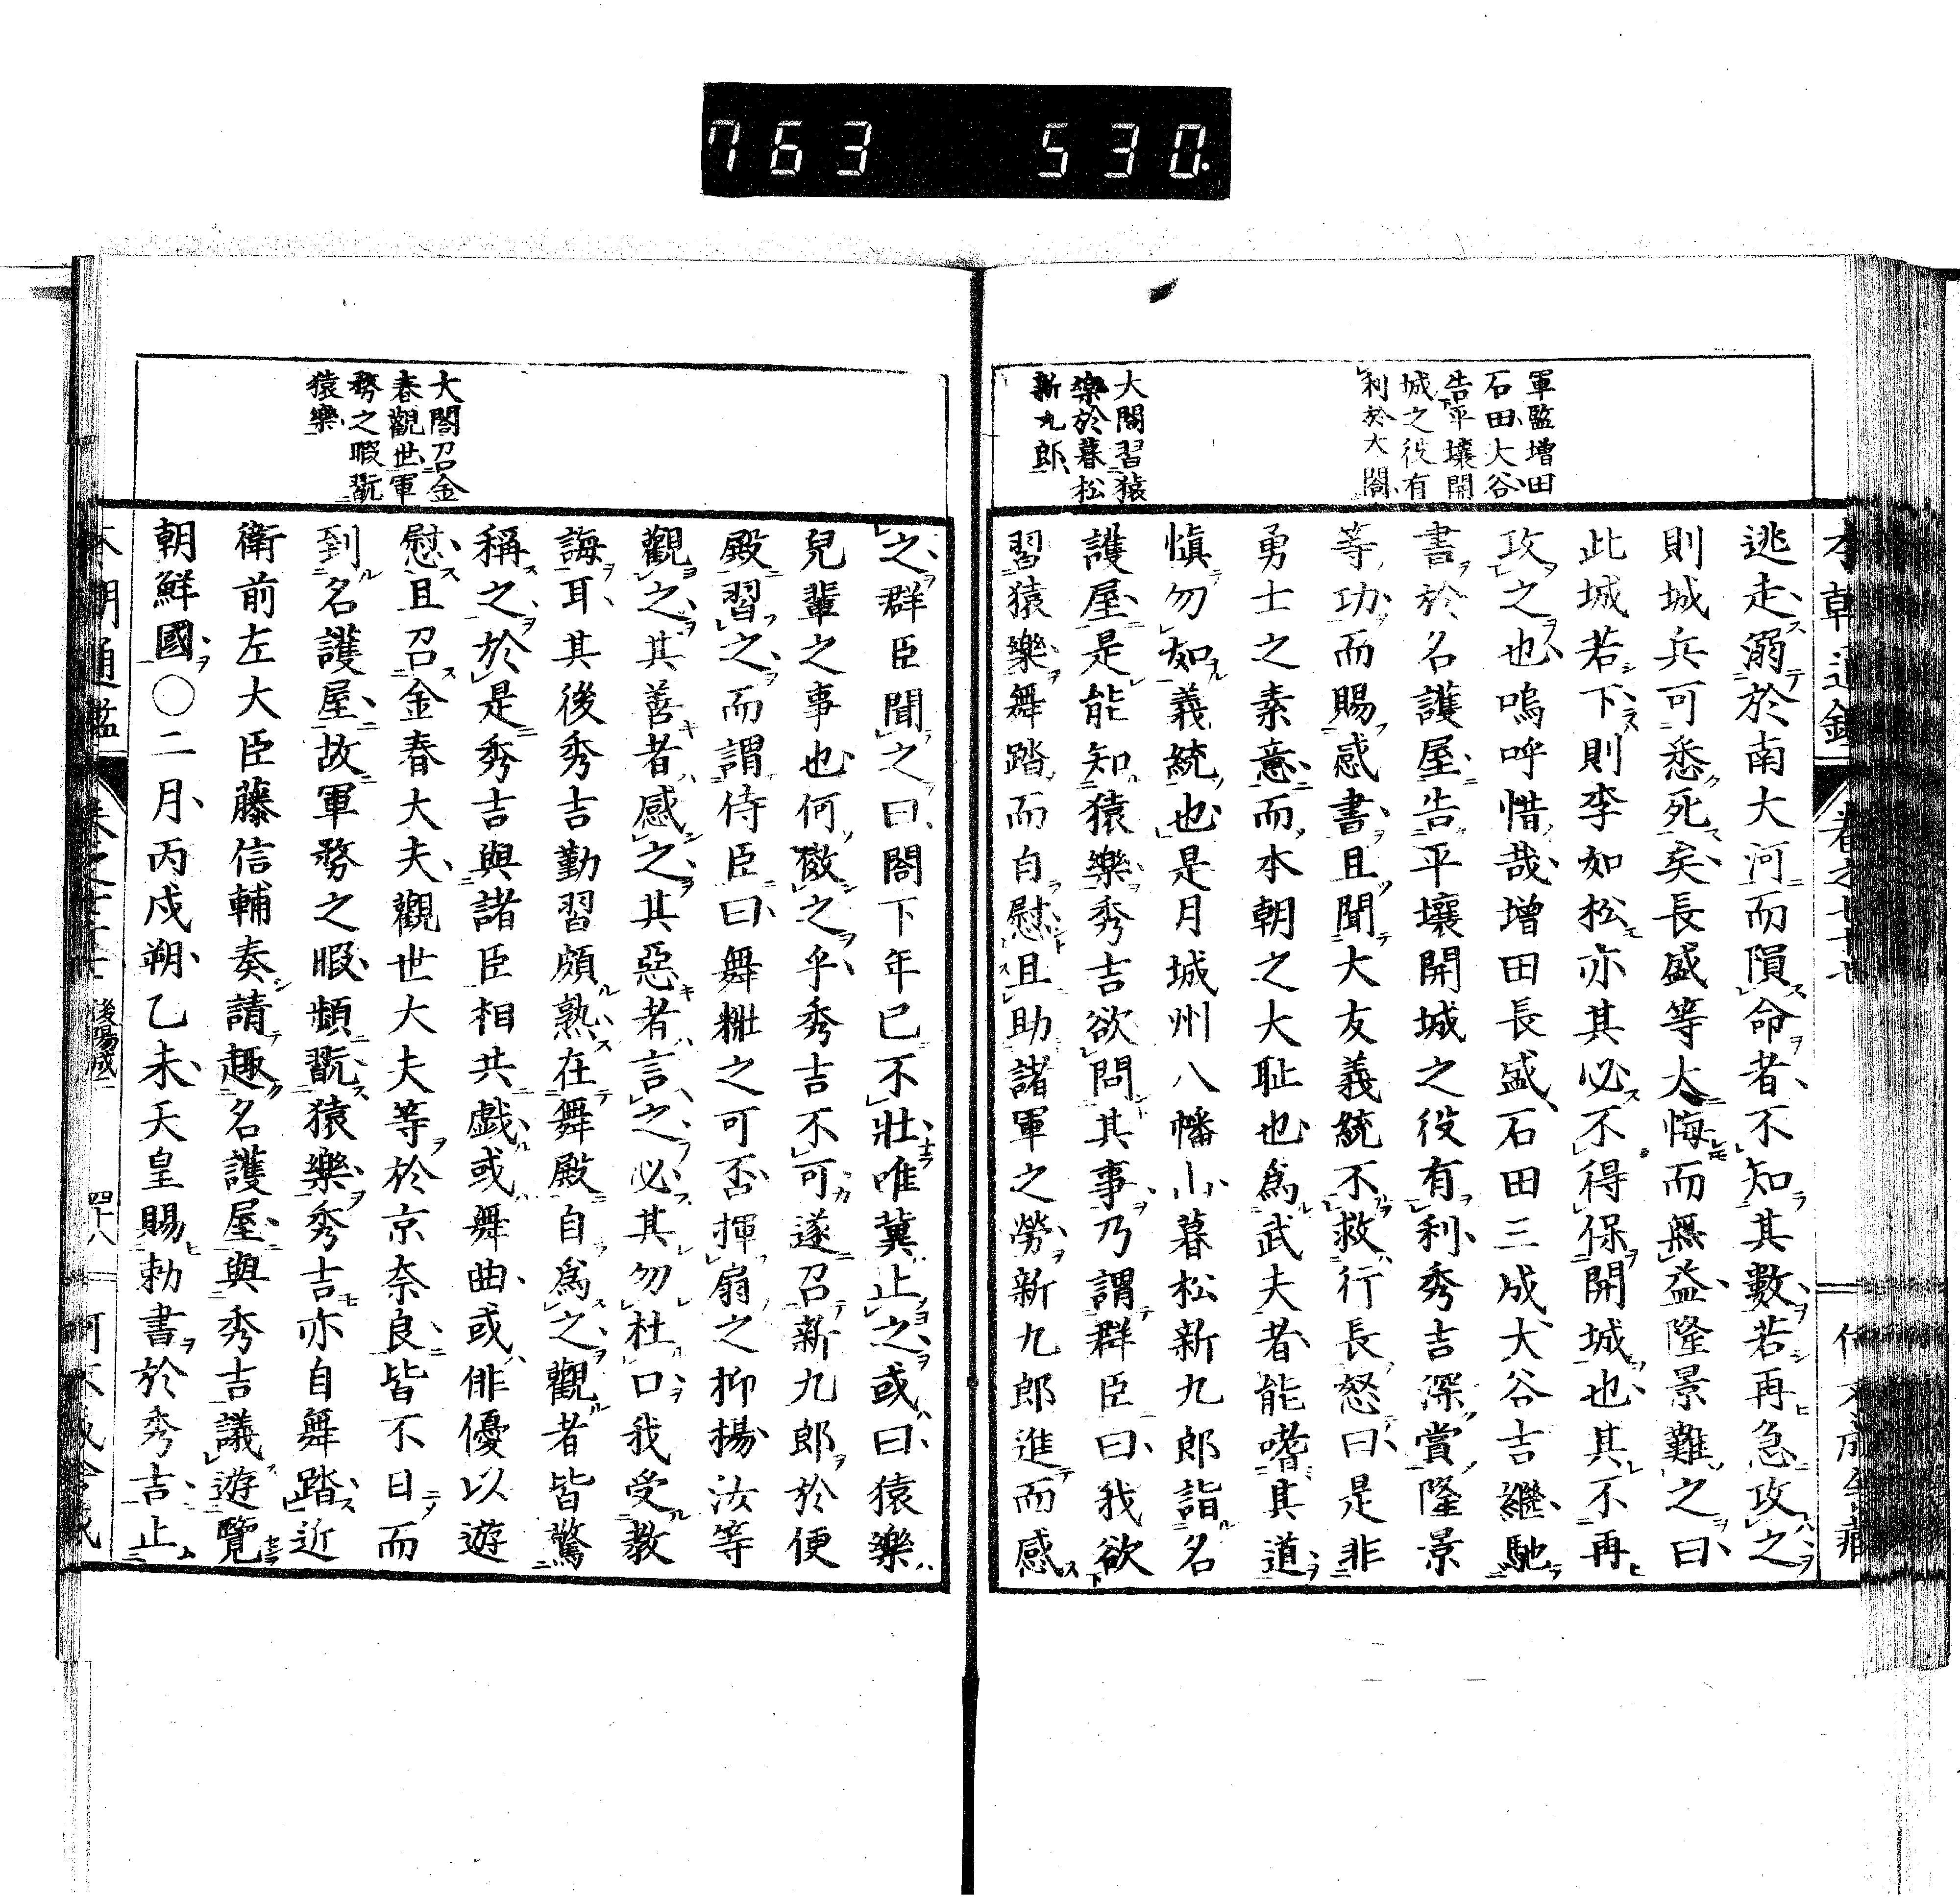 763 530.
軍監增田
石田大谷
告平壤開
城之役有
利於大閤
大閤習猿
樂於暮松
新九郎
逃走溺於南大河而隕命者不知其數若再急攻之
則城兵可悉死矣長盛等大悔而無益隆景難之曰
此城若下則李如松亦其必不得保開城也其不再
攻之也嗚呼惜哉增田長盛石田三成大谷吉繼馳
書於名護屋告平壤開城之役有利秀吉深賞隆景
等功而賜感書且聞大友義統不救行長怒曰是非
勇士之素意而本朝之大耻也爲武夫者能嗜其道
愼勿如義統也是月城州八幡山暮松新九郎詣名
護屋是能知猿樂秀吉欲問其事乃謂群臣曰我欲
習猿樂舞踏而自慰且助諸軍之勞新九郎進而感
大閤召金
春觀世軍
務之暇翫
猿樂
之群臣聞之曰閤下年已不壯唯冀止之或曰猿樂
兒輩之事也何傚之乎秀吉不可遂召新九郎於便
殿習之而謂侍臣曰舞粧之可否揮扇之抑揚汝等
觀之其善者感之其惡者言之必其勿杜口我受教
誨耳其後秀吉勤習頗熟在舞殿自爲之觀者皆驚
稱之於是秀吉與諸臣相共戯或舞曲或俳優以遊
慰且召金春大夫觀世大夫等於京奈良皆不日而
到名護屋故軍務之暇頻翫猿樂秀吉亦自舞踏近
衛前左大臣藤信輔奏請趣名護屋與秀吉議遊覽
朝鮮國〇二月丙戌朔乙未天皇賜勅書於秀吉止
後陽成二
四十八